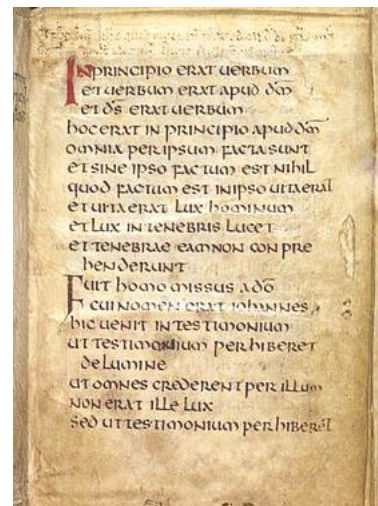 IN PRINCIPIO ERAT UERBUM
ET UERBUM ERAT APUD DM
ET DS ERAT UERBUM
HOC ERAT IN PRINCIPIO APUD DM
OMNIA PER IPSUM FACTA SUNT
ET SINE IPSO FACTUM EST NIHIL
QUOD FACTUM EST IN IPSO UITA ERAT
ET UITA ERAT LUX HOMINUM
ET LUX IN TENEBRIS LUCET
ET TENEBRAE EAM NON CON PRE
HENDERUNT
FUIT HOMO MISSUS A DO
CUI NOMEN ERAT IOHANNES
HIC UENIT IN TESTIMONIUM
UT TESTIMONIUM PERHIBERET
DE LUMINE
UT OMNES CREDERENT PER ILLUM
NON ERAT ILLE LUX
SED UT TESTIMONIUM PERHIBERET